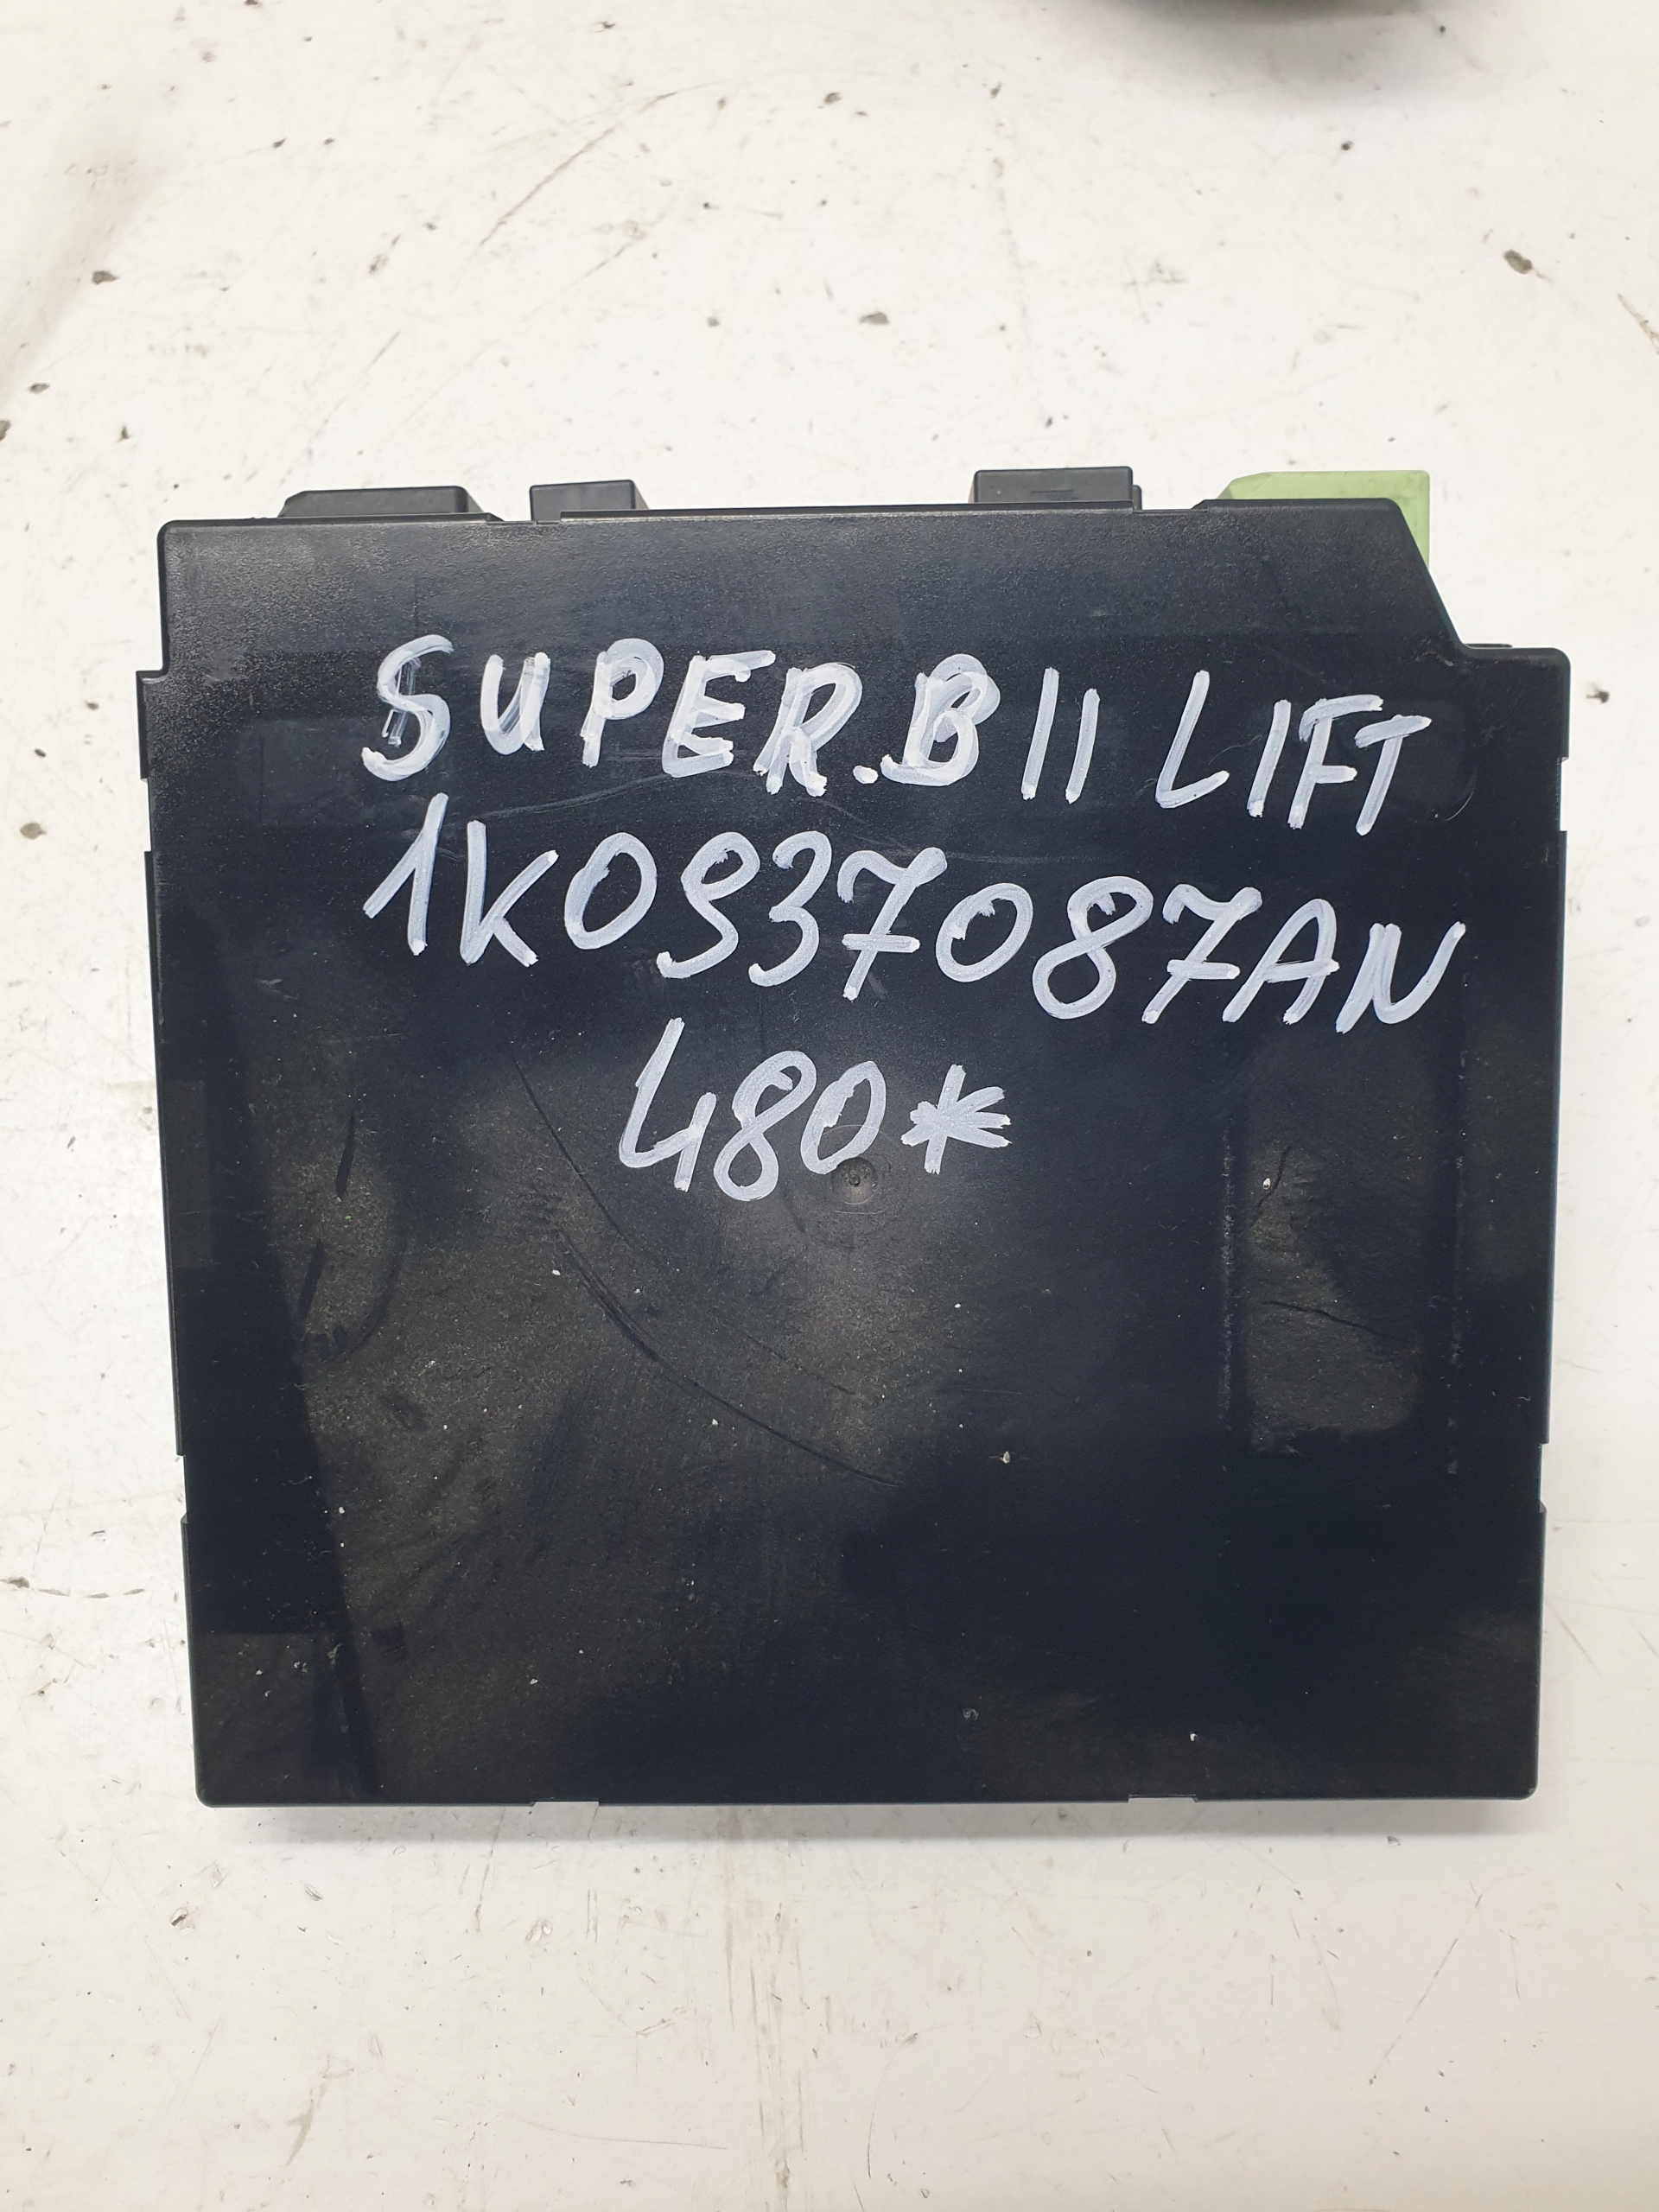 SUPER.B II LIFT
1K0937087AN
480*